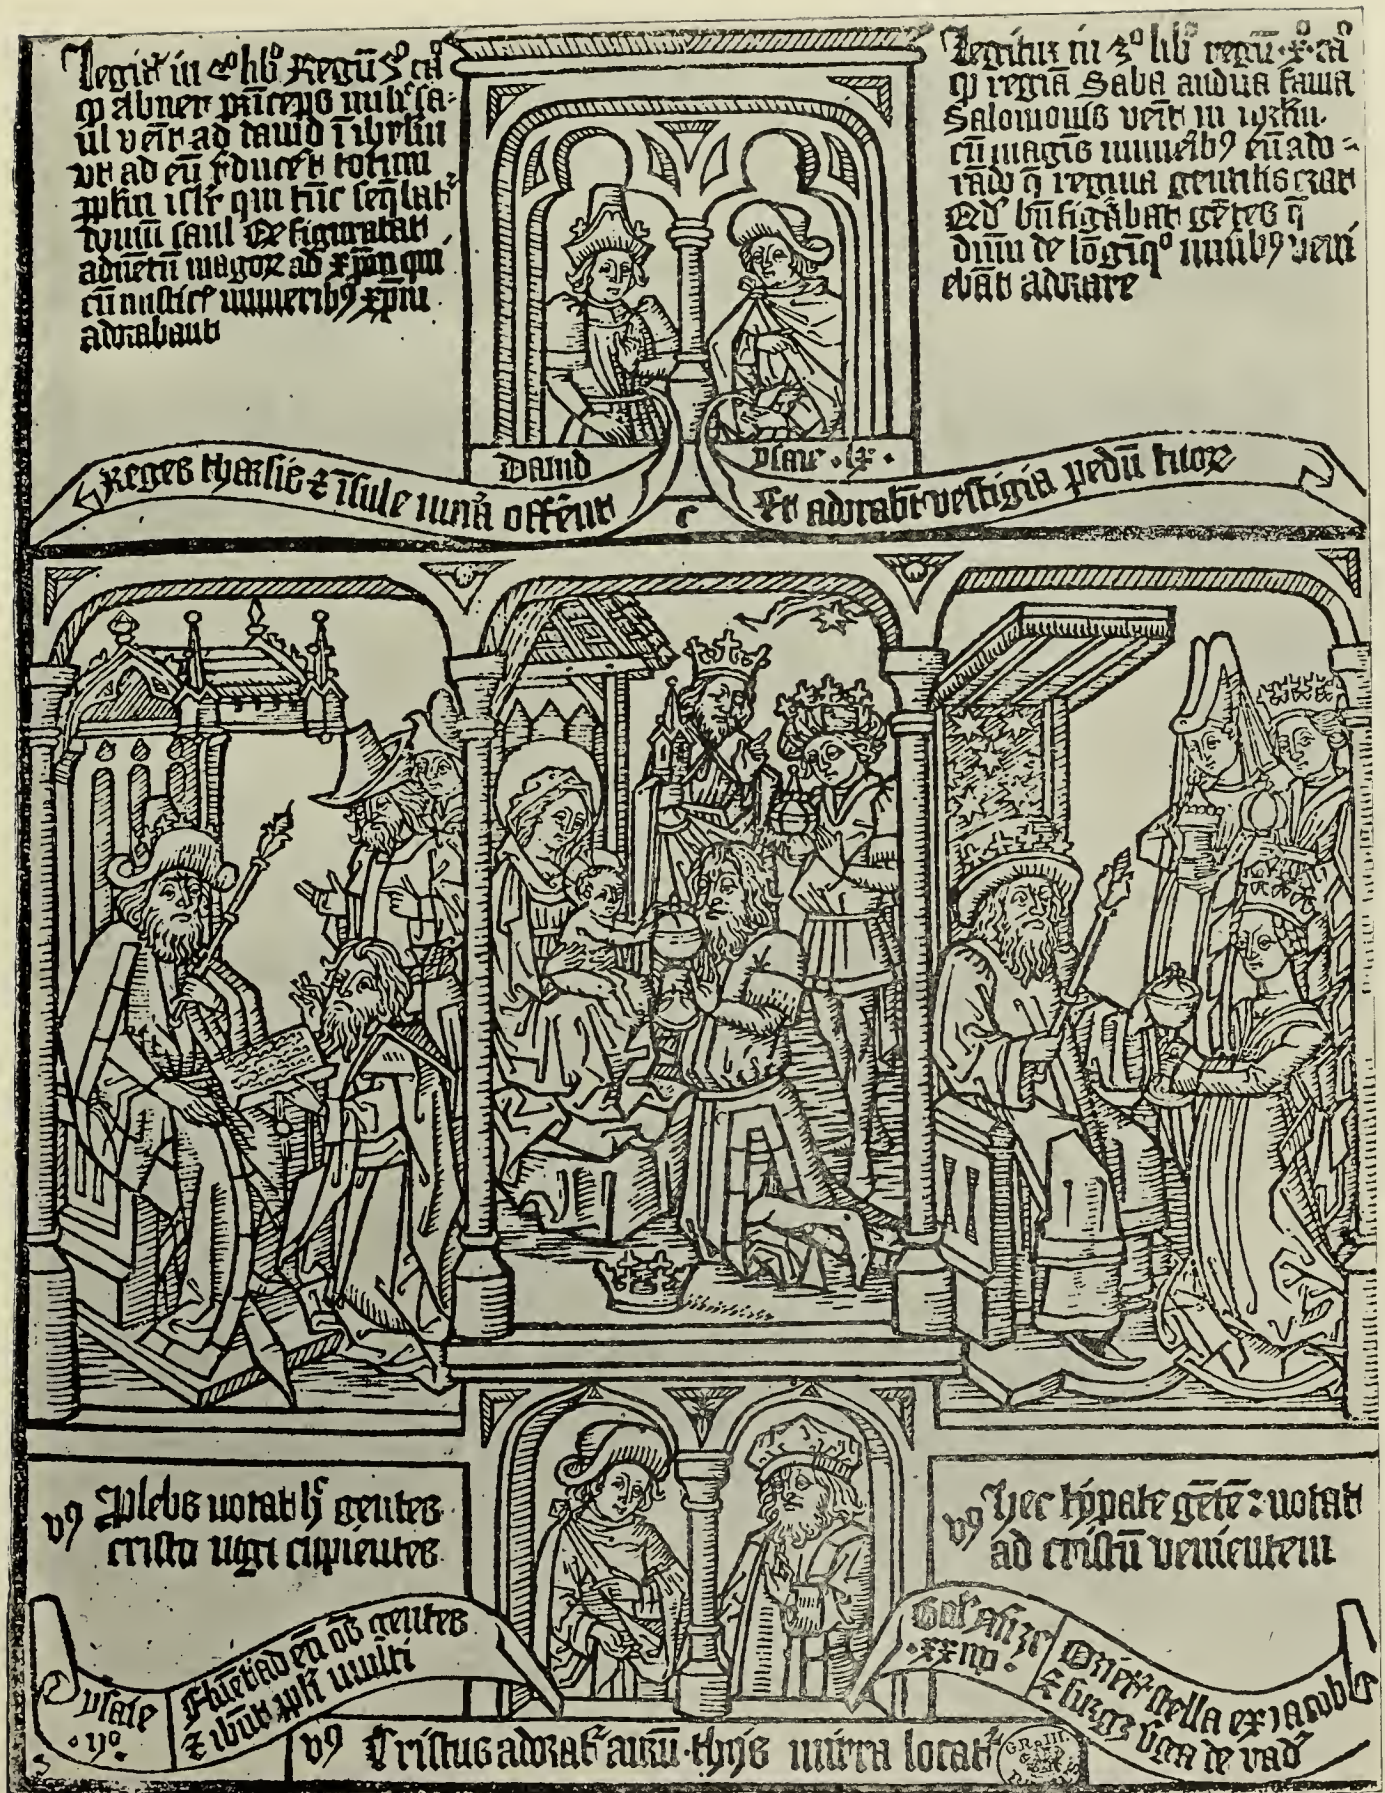 Legit᷑ in 2º lib̄º Regū 3º ca̅º
qꝫ abner prīceps milit̄ sa-
ul venit ad dauid ī ihrlm
vt ad eū rduceret totum
pplm isrl qui tūc seq̄bat᷑
domū saul Qd̄ figurabat
aduētū magoꝝ ad xp̄m qui
cū misticis muneribꝰ xp̄m
adorabant
Legitur in 3º lib̄º regū .xº. ca̅º
qꝫ regia Saba audita fama
Salomonis venit in ihrlm
cū magis muneribꝰ eū ado-
rādo q̄ regina gentilis erat
Qd̄ bn̄ figurabat gētes q̄
dn̄m de lōgīqº muneribꝰ veni
ebāt adorare
Reges tharsis ⁊ īsule mun̄a offerēt
Dauid
c
ysaie .lx.
Et adorabūt vestigia pedū tuoꝝ
vꝰ Plebs notat hͨ gentes
cristo iūgi cupientes
vꝰ Hec typate gētē notat
ad cristū venientem
ysaie
.ijº.
Fluēt ad eū oēs gentes
⁊ ibūt ppli multi
Balaam
.xxiiij.
Oriet᷑ stella ex iacob
⁊ surget virga de
vꝰ Cristus adorat᷑ aurū thus mirra locat᷑